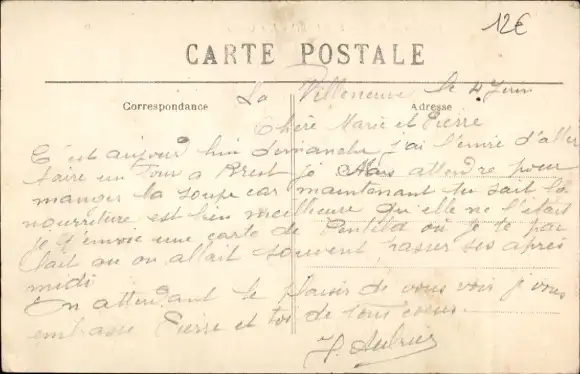 12€
CARTE POSTALE
Correspondance
Adresse
La Villeneuve le 4 Juin
Chère Marie et Pierre
C'est aujour hui dimanche j'ai l'envie d'aller
faire un tour a Brest je vais attendre pour
manger la soupe car maintenant tu sait la
nourriture est bien meilleure qu'elle ne l'était
je t'envoie une carte de où je te par
lait ou on allait souvent passer ses après
midi
En attendant le plaisir de vous voir je vous
embrasse Pierre et toi de tous coeur